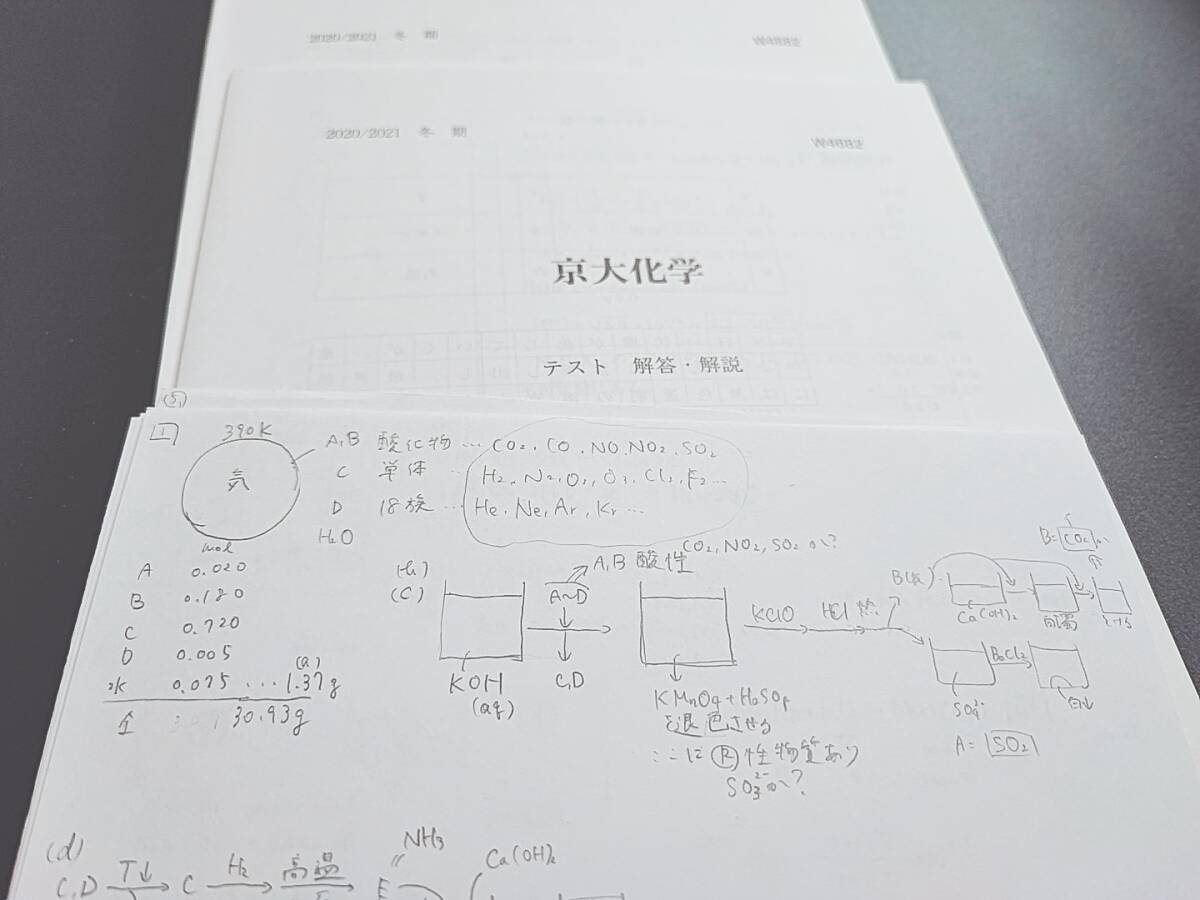 2020/2021 冬 期 W4882
2020/2021 冬 期 W4882
京大化学
テスト 解答・解説
1 390K
気
A,B 酸化物… CO2, CO, NO, NO2, SO2
C 単体… H2, N2, O2, O3, Cl2, F2…
D 18族… He, Ne, Ar, Kr…
H2O
CO2, NO2, SO2か?
mol
A 0.020
B 0.180
C 0.720
D 0.005
(a)
水 0.075 … 1.37g
全 30.93g
(b)
(c)
A~D
A,B 酸性
C,D
KOH
(aq)
KMnO4+H2SO4
を退色させる
∴ に Ⓡ性物質あり
SO3²⁻か?
KClO
HCl 熱
B(気)
Ca(OH)2
白濁
B= CO2
BaCl2
SO4²⁻
白↓
A= SO2
(d)
C,D T↓ C H2 高温 E
NH3
Ca(OH)2